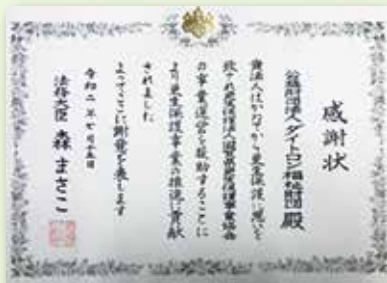 感謝状
公益財団法人ダイトロン福祉財団 殿
貴法人はかねてから更生保護に思いを
致され更生保護法人更生保護事業協会
の事業運営を援助することに
より更生保護事業の推進に貢献
されました
よってここに謝意を表します
令和二年七月十五日
法務大臣 森 まさこ